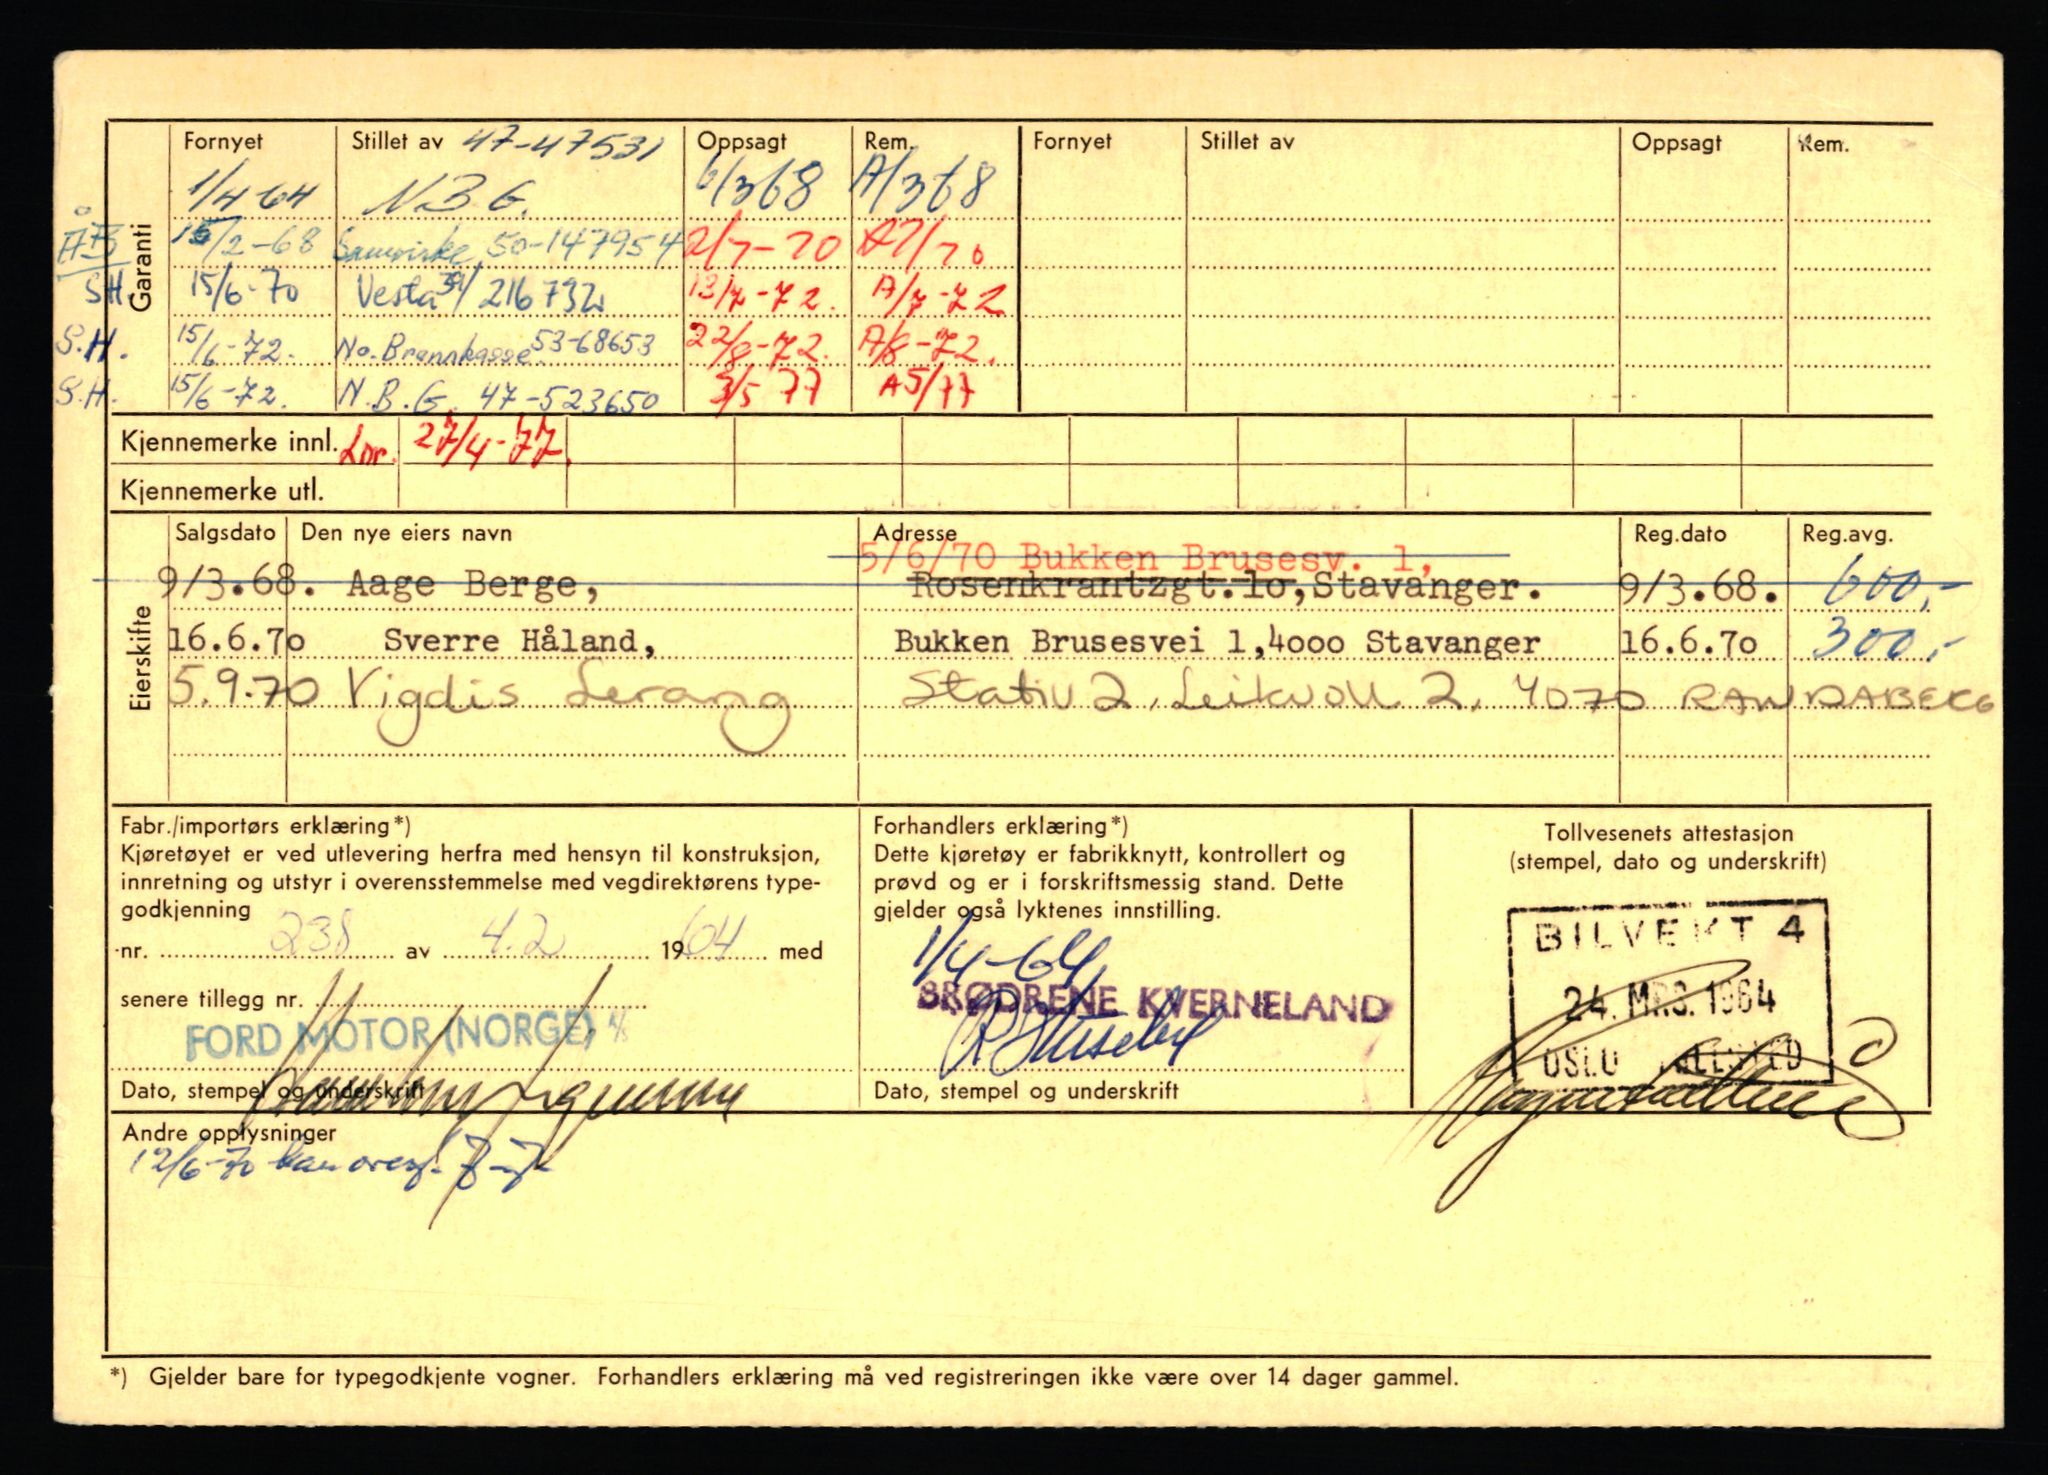 Garanti
Fornyet Stillet av 47-47531 Oppsagt Rem. Fornyet Stillet av Oppsagt Rem.
1/4-64 N.B.G. 6/368 A/368
ÅB 15/2-68 Samvirke 50-147954 2/7-70 A7/70
SH. 15/6-70 Vesta 39/216732 13/7-72. A/7-72
S.H. 15/6-72. No. Brannkasse 53-68653 22/8-72. A/8-72.
S.H. 15/6-72. N.B.G. 47-523650 3/5 77 A5/77
Kjennemerke innl. Lor. 27/4-77.
Kjennemerke utl.
Eierskifte
Salgsdato Den nye eiers navn Adresse Reg.dato Reg.avg.
5/6/70 Bukken Brusesv. 1,
9/3.68. Aage Berge, Rosenkrantzgt.10,Stavanger. 9/3.68. 600,-
16.6.70 Sverre Håland, Bukken Brusesvei 1,4000 Stavanger 16.6.70 300,-
5.9.70 Vigdis Lerang Stativ 2, Leikvoll 2, 4070 RANDABERG
Fabr./importørs erklæring*)
Kjøretøyet er ved utlevering herfra med hensyn til konstruksjon,
innretning og utstyr i overensstemmelse med vegdirektørens type-
godkjenning
nr. 238 av 4.2 1964 med
senere tillegg nr.
FORD MOTOR (NORGE) A/S
Dato, stempel og underskrift
Forhandlers erklæring*)
Dette kjøretøy er fabrikknytt, kontrollert og
prøvd og er i forskriftsmessig stand. Dette
gjelder også lyktenes innstilling.
1/4-64
BRØDRENE KVERNELAND
Dato, stempel og underskrift
Tollvesenets attestasjon
(stempel, dato og underskrift)
BILVEKT 4
24. MRS. 1964
OSLO TOLLSTED
Andre opplysninger
12/6-70
*) Gjelder bare for typegodkjente vogner. Forhandlers erklæring må ved registreringen ikke være over 14 dager gammel.